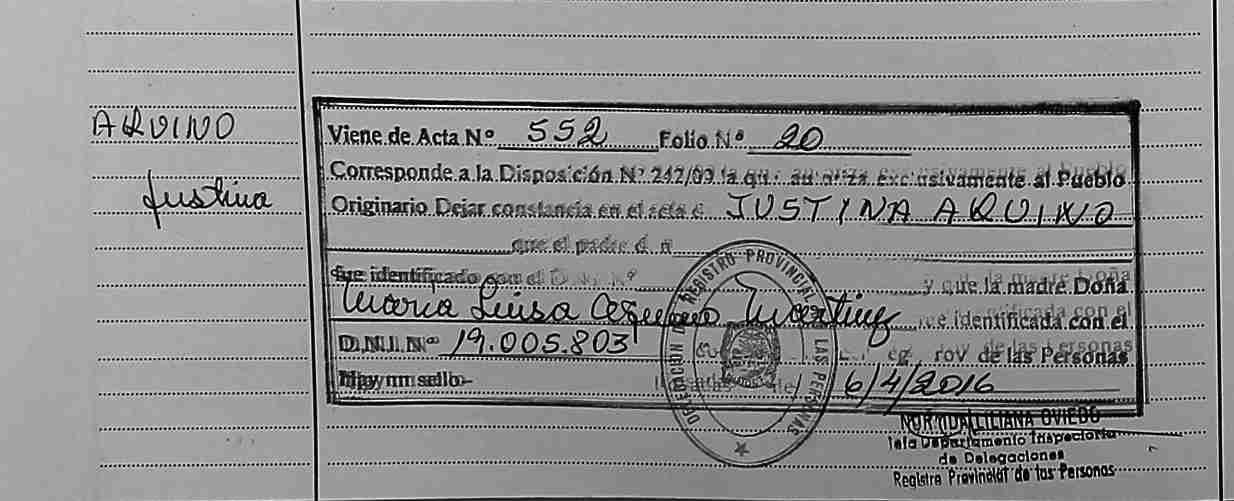 AQUINO
Justina
Viene de Acta Nº 552 Folio Nº 20
Corresponde a la Disposición Nº 242/09 la que autoriza exclusivamente al Pueblo
Originario Dejar constancia en el acta d JUSTINA AQUINO
que el padre d n
fue identificado con el D.N.I. Nº y que la madre Doña
Maria Luisa Martinez identificada con el
D.N.I. Nº 19.005.803 de las Personas
Hay un sello- 6/4/2016
DELEGACION DE REGISTRO PROVINCIAL LAS PERSONAS
LILIANA OVIEDO
Departamento Inspectoria
de Delegaciones
Registro Provincial de las Personas